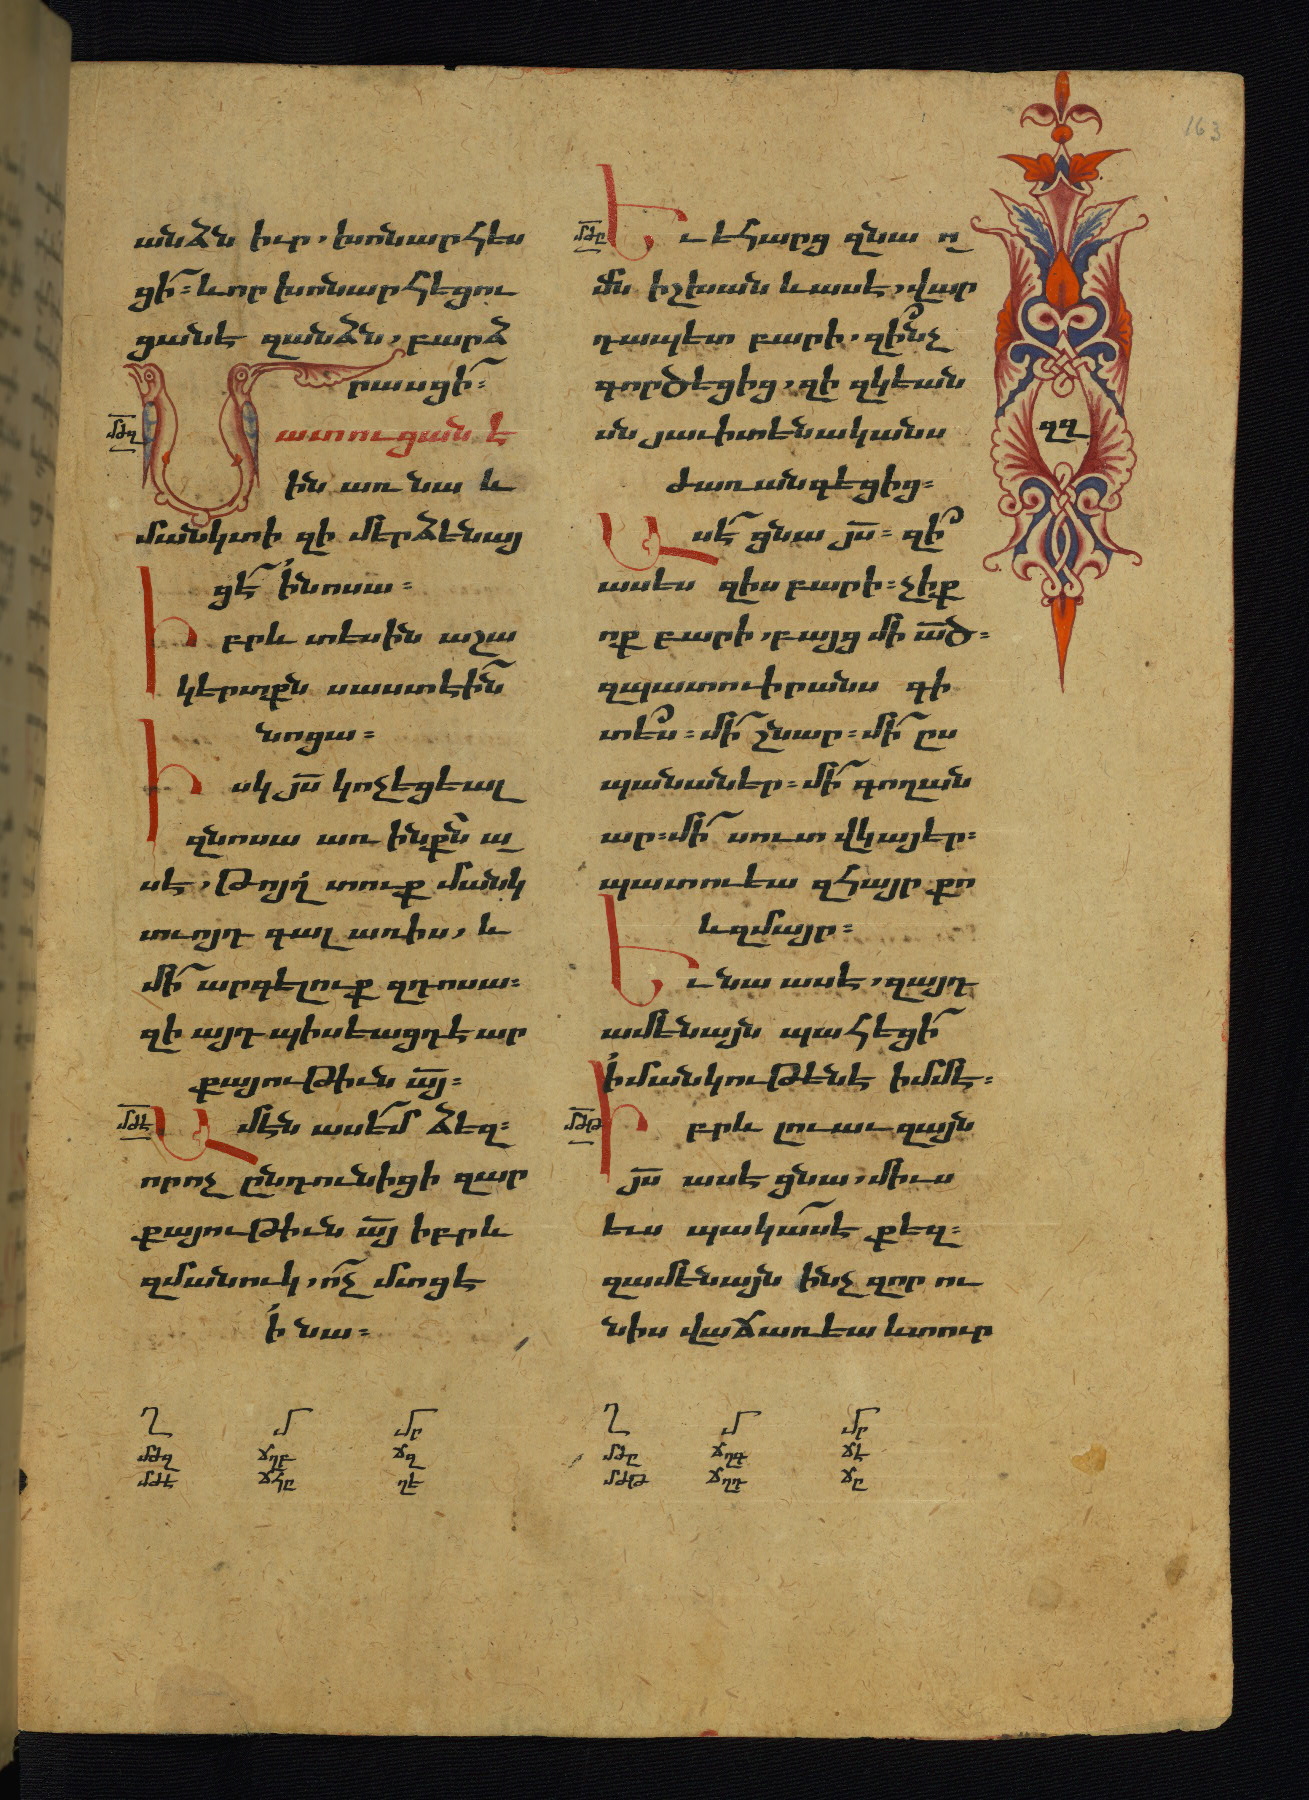 163
անձն իւր, խոնարհես
ցի՜։ և որ խոնարհեցու
ցանէ զանձն, բարձ
րասցի՜։
մժզ
Մատուցանէ
ին առ նա և
մանկտի զի մերձենայ
ցէ՜ ի՛նոսա։
Իբրև տեսին աշա
կերտքն սաստէին
նոցա։
Իսկ յս̅ կոչեցեալ
զնոսա առ ինքն ա
սէ, Թոյլ տուք մանկ
տւոյդ գալ առիս, և
մի՜ արգելուք զդոսա։
զի այդպիսեացդ է ար
քայութիւն ա̅յ։
մժէ
Ամէն ասեմ ձեզ։
որոչ ընդունիցի զար
քայութիւն ա̅յ իբրև
զմանուկ, ո՜չ մտցէ
ի՛ նա։
մժը
Եւ եհարց զնա ո
մն իշխան և ասէ, վար
դապետ բարի, զի՞նչ
գործեցից, զի զկեան
սն յաւիտենականս
ժառանգեցից։
Ասէ՜ ցնա յս̅։ զի՞
ասես զիս բարի։ չիք
ոք բարի, բայց մի ա̅ծ։
զպատուիրանս գի
տե՞ս։ մի՜ շնար։ մի՜ ըս
պանաներ։ մի՜ գողան
ար։ մի՜ սուտ վկայեր։
պատուեա զհայր քո
և զմայր։
Եւ նա ասէ, զայդ
ամենայն պահեցի՜
ի՛մանկութենէ իմմէ։
մժթ
Իբրև լուաւ զայն
յս̅ ասէ ցնա, միւս
ևս պակասէ քեզ։
զամենայն ինչ զոր ու
նիս վաճառեա և տուր
զզ
Ղ մ մր
մժզ ճղբ ճզ
մժէ ճհը ղէ
Ղ մ մր
մժը ճղգ ճէ
մժթ ճղդ ճը